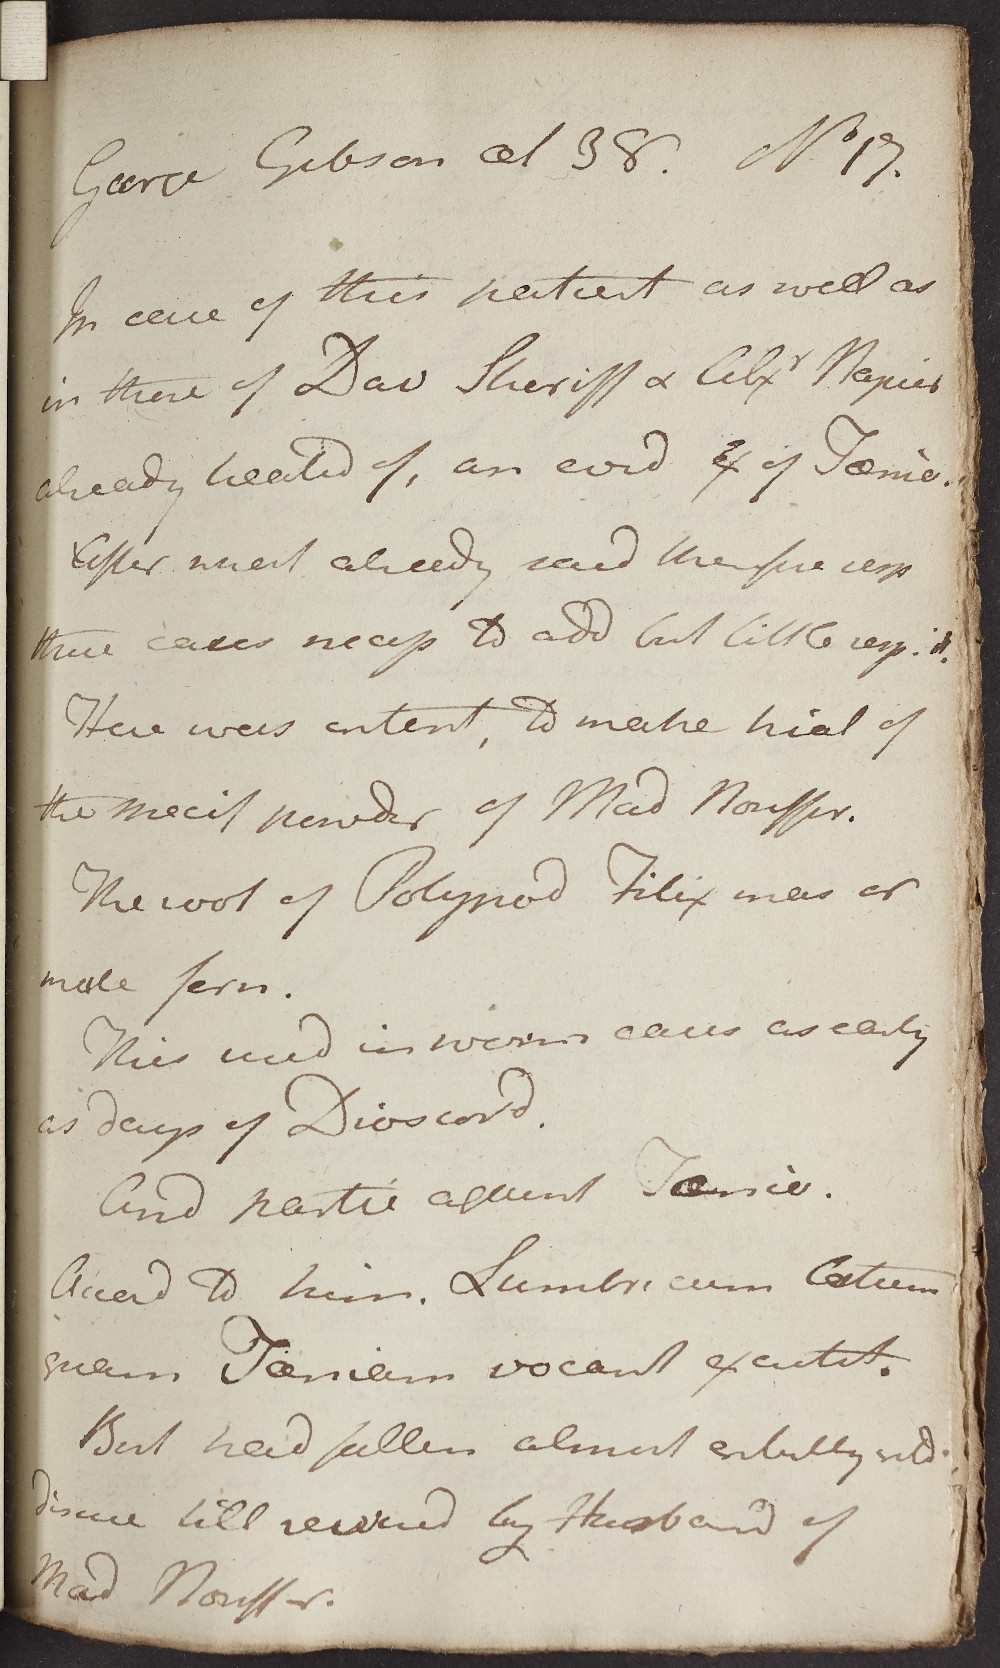 George Gibson æt 38. No 17.
In case of this patient as well as
in those of Dav Sheriff & Alexr Napier
already treated of, an evid of Tænia.
After what already said therefore resp
these cases necess to add but little resp. it.
Here was intent, to make trial of
the specif powder of Mad Nouffer.
The root of Polypod Filix mas or
male fern.
This used in worm cases as early
as days of Dioscorid.
And partic against Tænia.
Accord to him. Lumbricum latum
quam Tæniam vocant excutit.
But had fallen almost entirely into
disuse till revived by Husband of
Mad Nouffer.